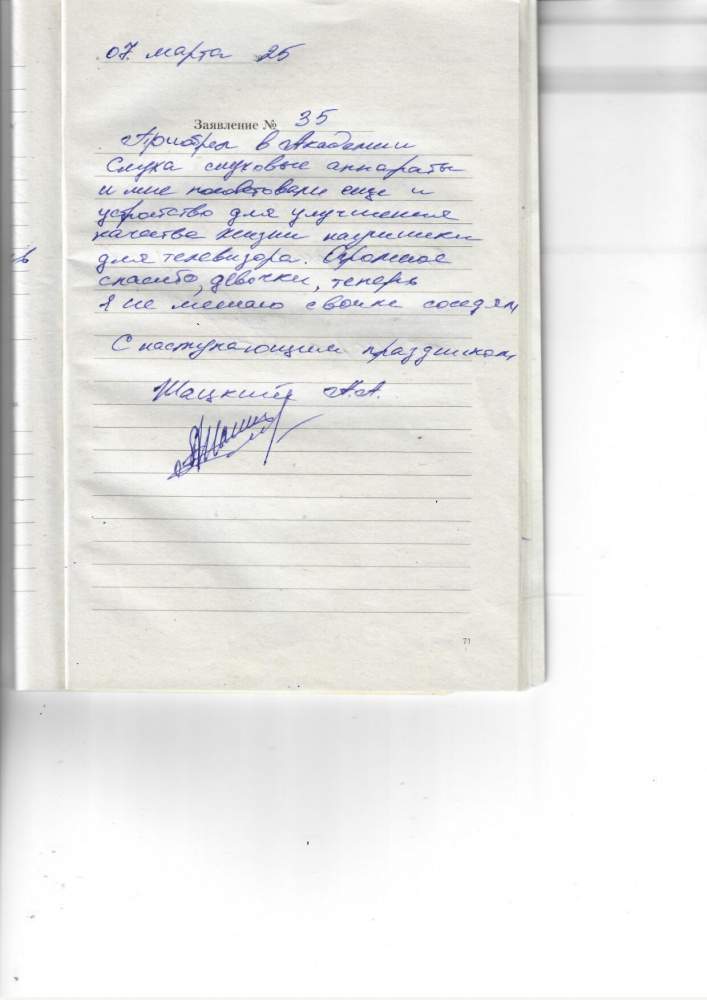 07. марта 25
Заявление № 35
Приобрел в г. Академии
Слуха слуховые аппараты
и мне посоветовали еще и
устройство для улучшения
качества жизни наушники
для телевизора. Огромное
спасибо, девочки, теперь
я не мешаю своим соседям,
С наступающим праздником,
Шацкий А.А.
71